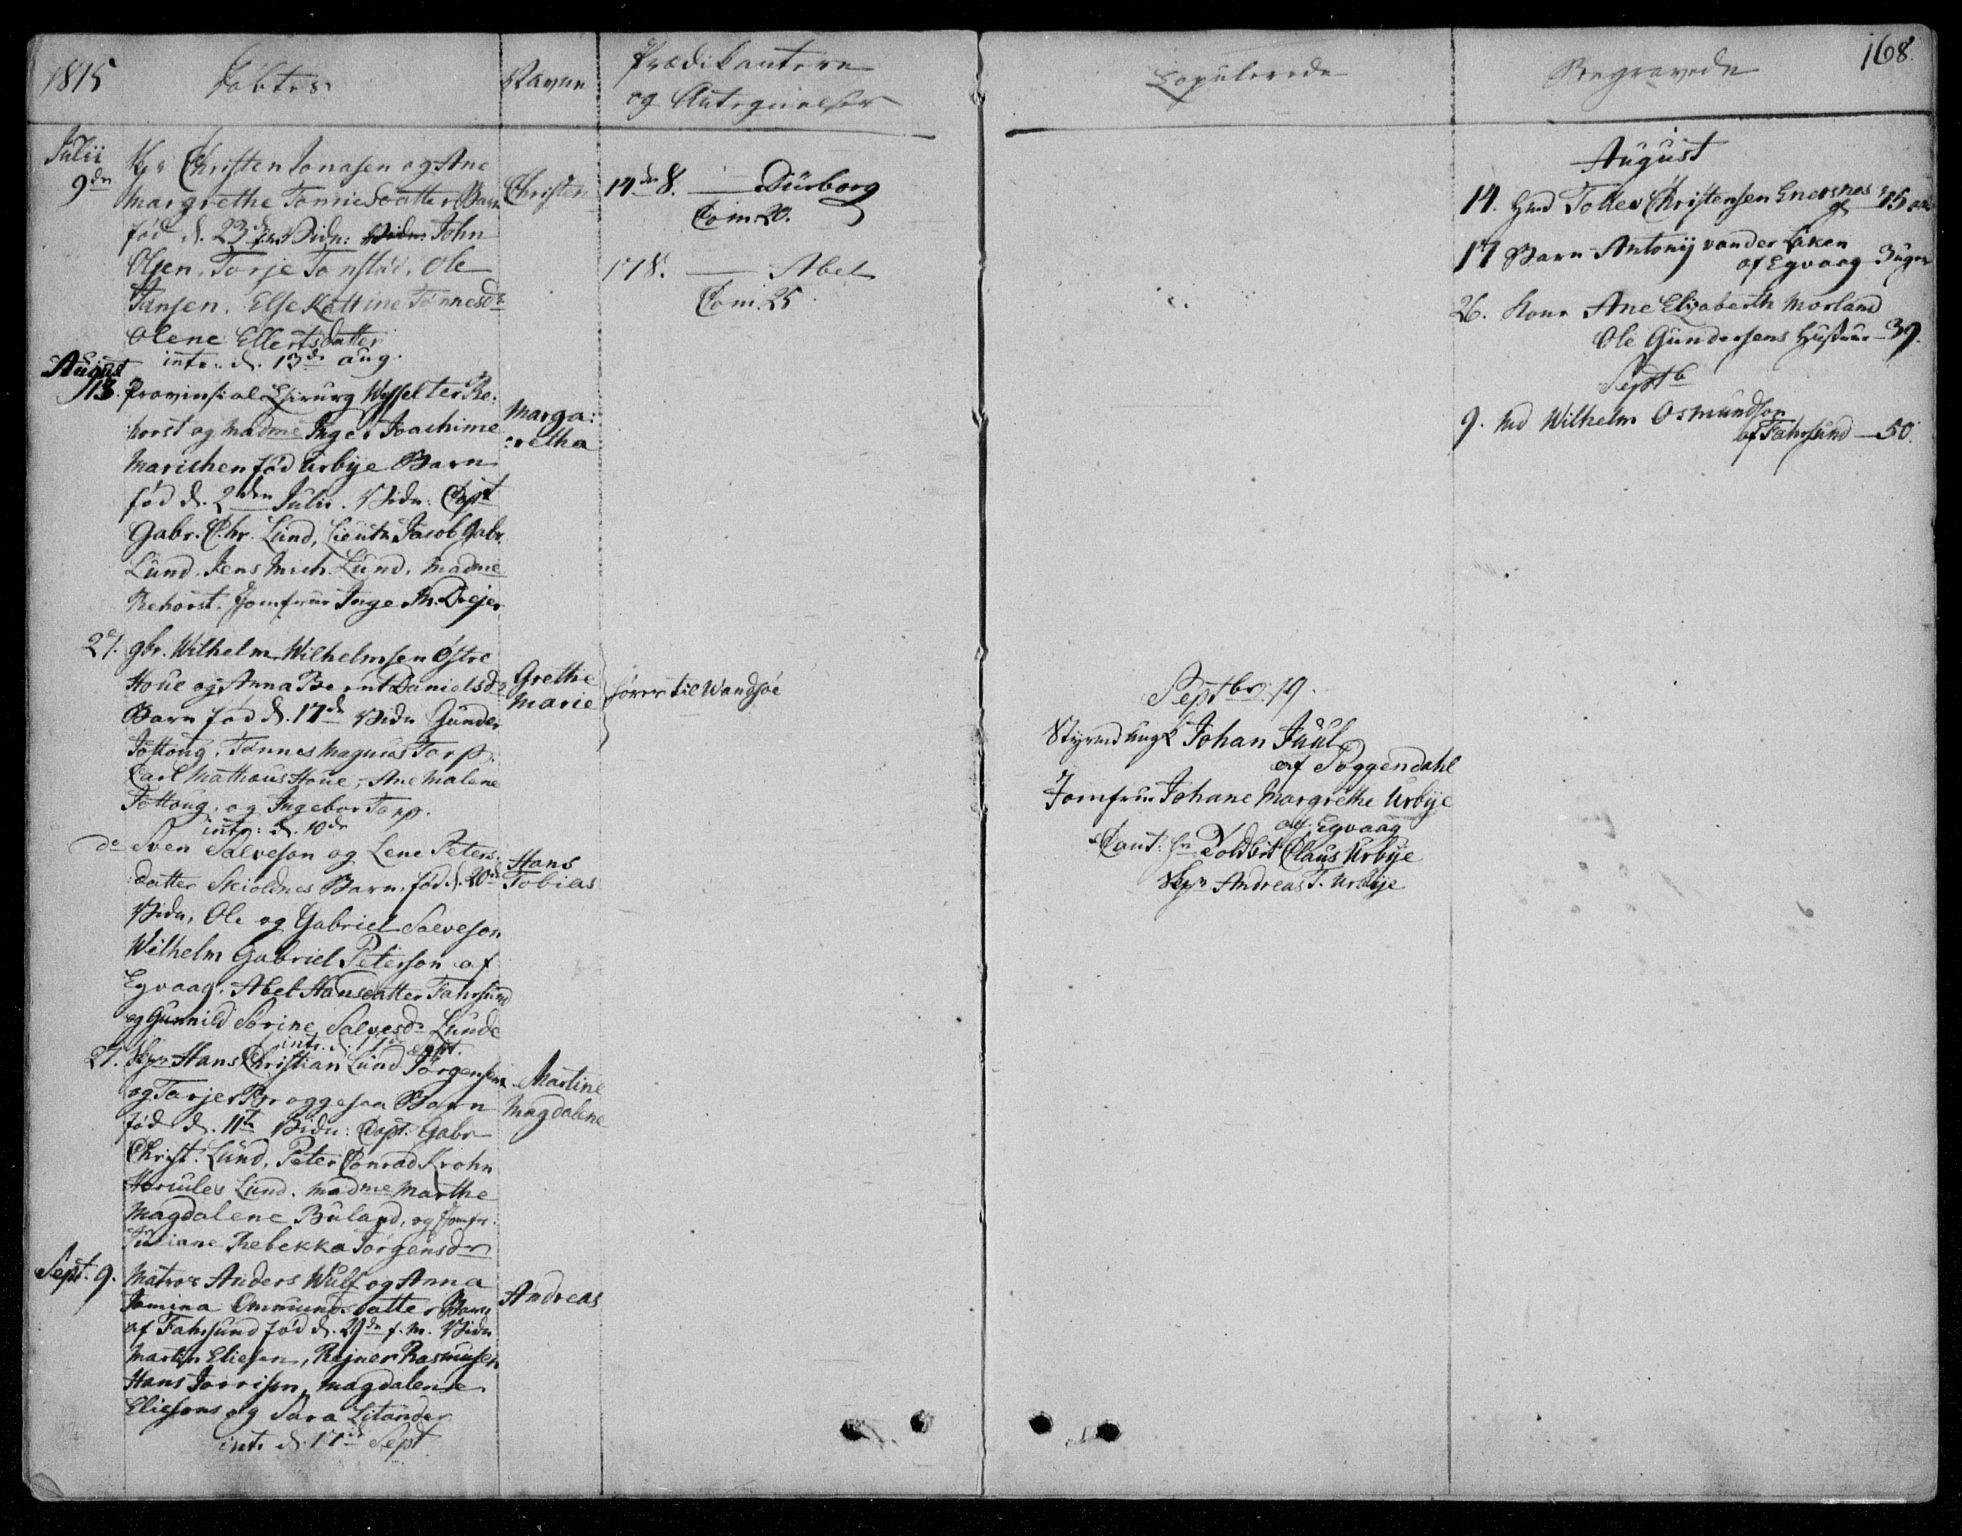 168
1815
Døbte
Navne
Prædikantere
og Antegnelser
Copulerede
Begravede
Julii
9de
Christen Jonasen og Ane
Margrethe Tønnesdatter Barn
fød d. 23de Vidn: John
Olsen. Torje Tonstad. Ole
Jansen. Else Kattine Tønnesdr
Olene Ellertsdatter
intr. d. 13de aug.
Christen
August
13. Provinsial Chirurg Wessel ter Re:
horst og Madme Inger Joachime
Marichen fød Urbye Barn
fød d. 2den Julii. Vidn. Capt
Gabr. Chr. Lund, Lieutn Jacob Gabr.
Lund. Jens Mich. Lund. Madme
Rehorst. Jomfrue Inge M. Drejer
Marga:
:retha
27. gbr. Wilhelm Wilhelmsen Østre
Houe og Anna Berent Danielsdr
Barn fød d. 17de Vidn Gunder
Jøttoug. Tønnes Magnus Torp.
Carl Mathæus Houe, Ane Malene
Jøttoug. og Ingebor Torp.
intr: d. 10de
Grethe
Marie
do Sven Salveson og Lene Peters:
datter Skioldnes Barn. fød d. 20de
Vidn, Ole og Gabriel Salveson
Wilhelm Gabriel Peterson af
Egvaag. Abel Hansdatter Fahrsund
og Gunnild Sørine Salvesdr Lunde
intr. d. Sept.
Hans
Tobias
27. Hans Christian Lund Jørgensen
og Tarjer Broggesaa Barn
fød d. 11te Vidn: Capt: Gabr
Christ. Lund, Peter Conrad Krohn
Hercules Lund. Madme Marthe
Magdalene Buland, og Jomfr:
Juliane Rebekka Jørgensdr
Martine
Magdalene
Sept. 9. Matros Anders Wulf og Anna
Jomina Ommundsdatter Barn
af Fahrsund fød d. 29de f. M. Vidn
Martin Eliesen, Rejner Rasmusen
Hans Jorrisen, Magdalene
Eliesens og Sara Litander
intr d. 17de Sept
Andreas
14de 8. — Dürborg
Com. 20.
17 8. — Abel
Com. 25
hører til Wandsøe
Septbr. 19.
Styrmd ungk Johan Juul
af Poggendahl
Jomfrue Johane Margrethe Urbye
af Egvaag
Caut: hr Toldbet Claus Urbye
Andreas T. Urbye
August
14. Tollev Christensen 15
17 Barn Antonij vander Laken
af Egvaag 3 uger
26. Kone Ane Elizabeth Morland
Ole Gundersens Hustrue 39.
Septb
9. Md Wilhelm Osmundson
af Fahrsund — 50.